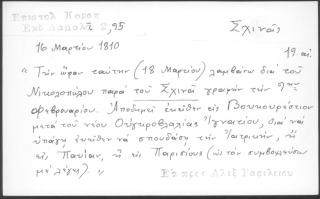 Επιστολ Κοραη
Εκδ Δαμαλᾶ 2,95
Σχινᾶς
16 Μαρτίου 1810
19 αἰ.
"Τὴν ὥραν ταύτην (18 Μαρτίου) λαμβάνω διὰ τοῦ
Νικολοπούλου παρὰ τοῦ Σχινᾶ γραφὴν τῆς 9ης
Φεβρουαρίου. Ἀποδημεῖ ἐκεῖθεν εἰς Βουκουρέστιον
μετὰ τοῦ νέου Οὑγκροβλαχίας Ἰγνατίου, διὰ νὰ
ὑπάγῃ ἐκεῖθεν νὰ σπουδάσῃ τὴν Ἰατρικήν, ἢ
εἰς Παυίαν, ἢ εἰς Παρισίους (ὡς τὸν συμβουλεύσω
μὲ λέγει)."
Αλεξ Βασιλειου